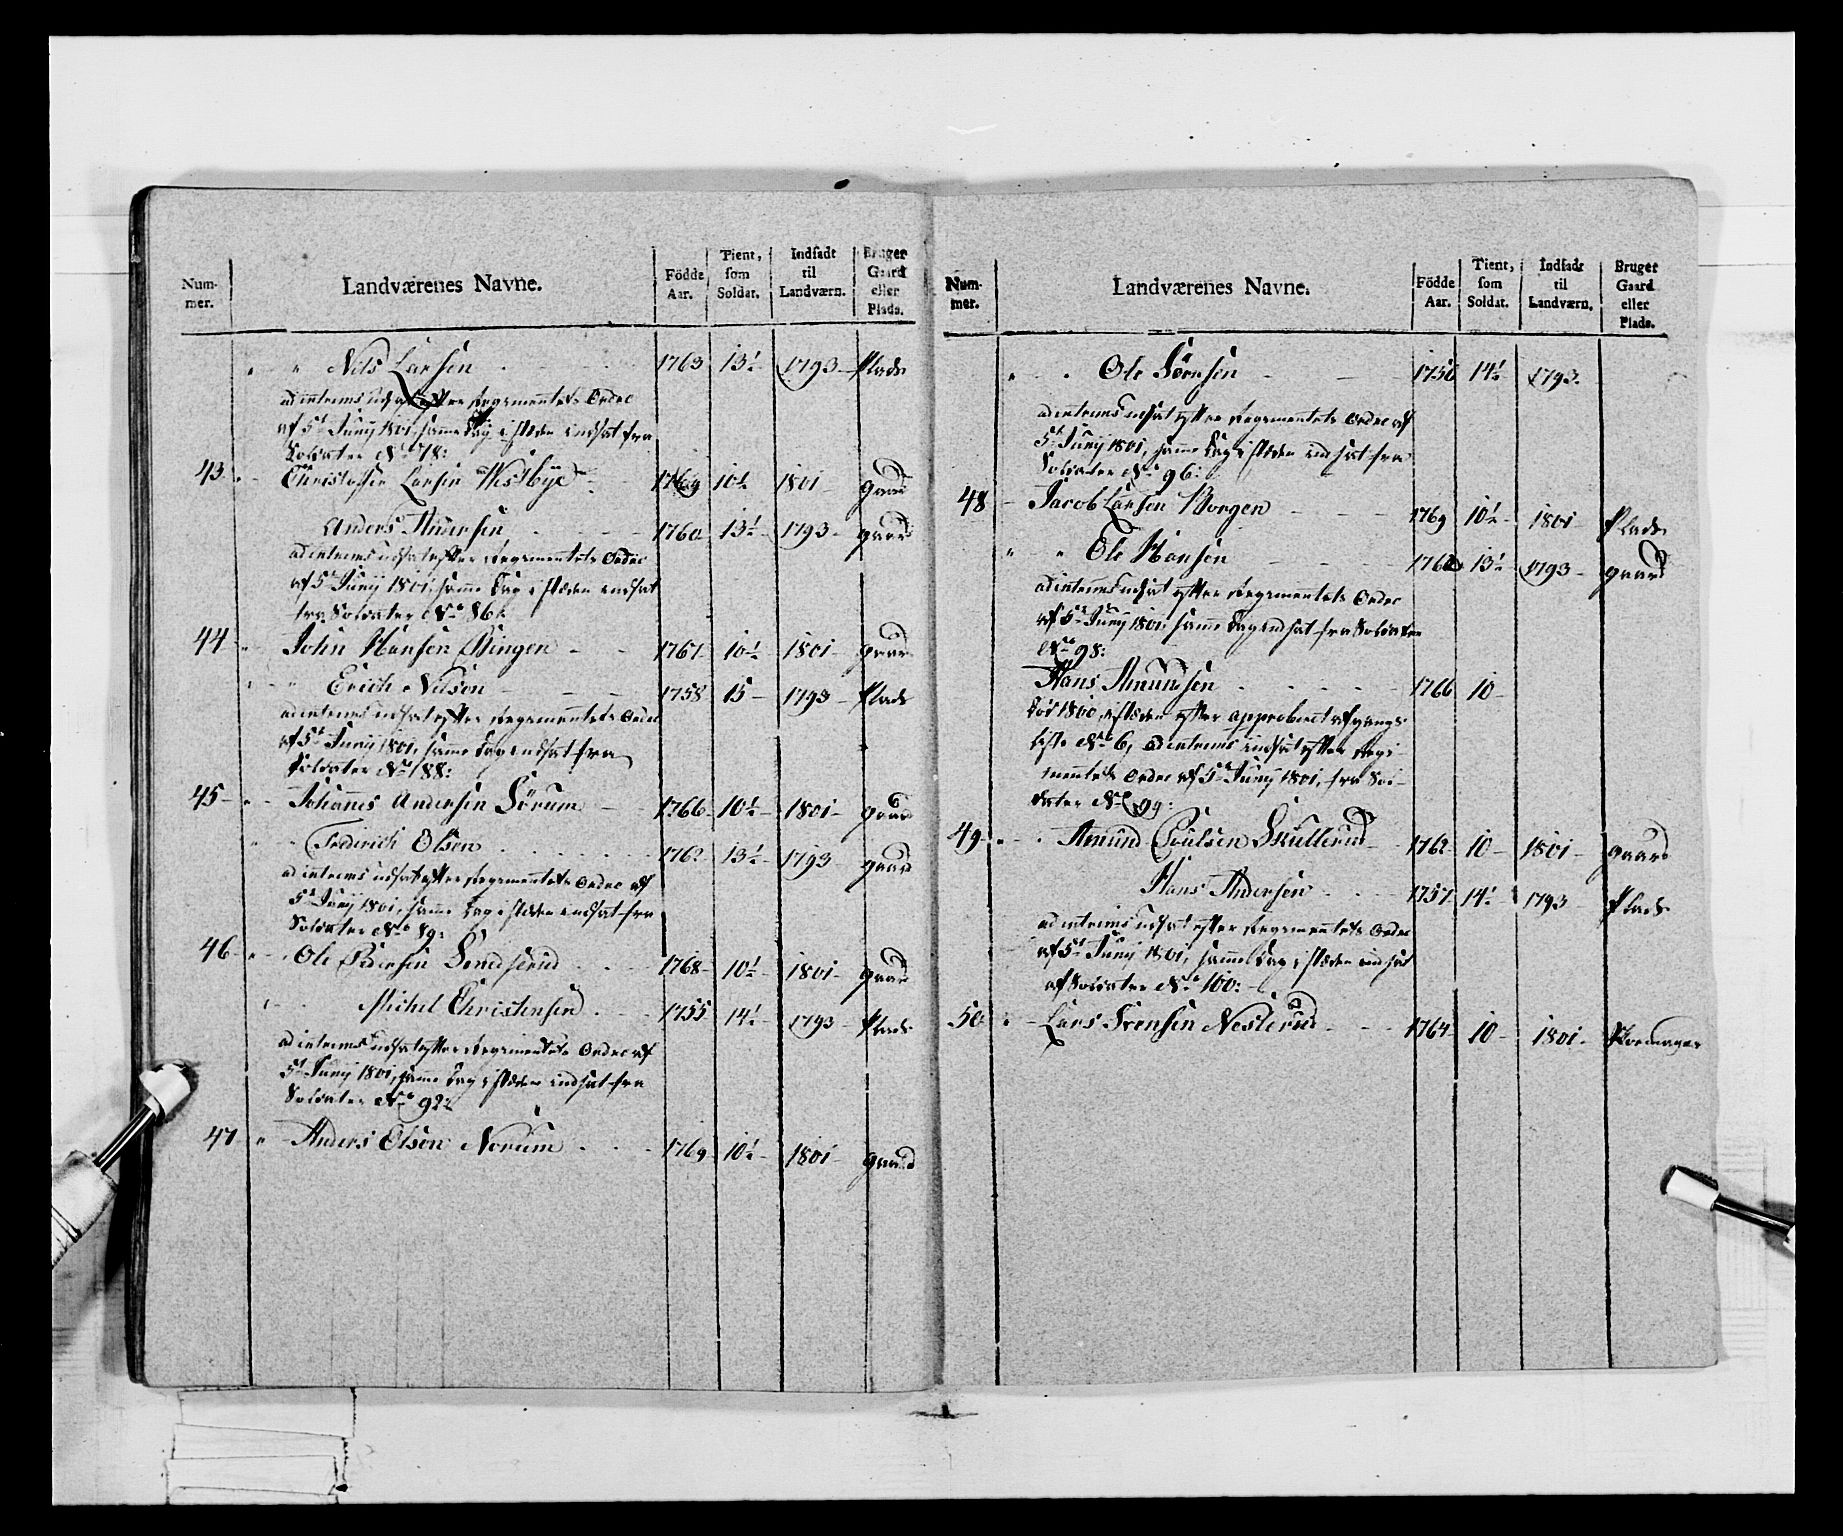 Num-
mer.
Landværenes Navne.
Födde
Aar.
Tient,
som
Soldat.
Indsadt
til
Landværn.
Bruger
Gaard
eller
Plads.
" " Nils Larsen 1763 13½ 1793 Plads
ad interims udsat efter Regimentets Ordre
af 5t Junij 1801, samme Dag i stæden indsat fra
Soldater No 78:
43 Christopher Larsen Westbye 1769 10½ 1801 gaard
Anders Andersen 1760 13½ 1793 gaard
ad interims udsat efter Regimentets Ordre
af 5t Junij 1801, samme Dag i stæden indsat
fra Soldater No 86:
44 John Hansen Bingen 1767 10½ 1801 gaard
" Erich Nilsen 1758 15 1793 Plads
ad interims udsat efter Regimentets Ordre
af 5t Junij 1801, samme Dag indsat fra
Soldater No 88:
45 Johannes Andersen Sörum 1766 10½ 1801 gaard
" Frederich Olsen 1762 13½ 1793 gaard
ad interims udsat efter Regimentets Ordre af
5t Junij 1801, samme Dag i stæden indsat fra
Soldater No 89:
46 Ole Pedersen 1768 10½ 1801 gaard
Michel Christensen 1755 14½ 1793 Plads
ad interims udsat efter Regimentets Ordre af
5t Junij 1801, samme Dag i stæden indsat fra
Soldater No 92:
47 " Anders Olsen Norum 1769 10½ 1801 gaard
Num-
mer.
Landværenes Navne.
Födde
Aar.
Tient,
som
Soldat.
Indsadt
til
Landværn.
Bruger
Gaard
eller
Plads.
" Ole Sörensen 1756 14½ 1793
ad interims udsat efter Regimentets Ordre af
5t Junij 1801, samme Dag i stæden indsat fra
Soldater No 96:
48 Jacob Larsen Borgen 1769 10½ 1801 Plads
" " Ole Hansen 13½ 1793 gaard
ad interims udsat efter Regimentets Ordre
af 5t Junij 1801, samme Dag indsat fra Soldater
No 98:
Hans Amundsen 1766 10
död 1800, i stæden efter approberet afgangs
liste No 6, ad interims indsat efter Regi-
mentets Ordre af 5t Junij 1801, fra Sol-
dater No 99:
49 Amund Poulsen Skullerud 1762 10 1801 gaard
Hans Andersen 1757 14½ 1793 Plads
ad interims udsat efter Regimentets Ordre
af 5t Junij 1801, samme Dag i stæden indsat
af Soldater No 100:
50 Lars Svensen Nesterud 1764 10 1801